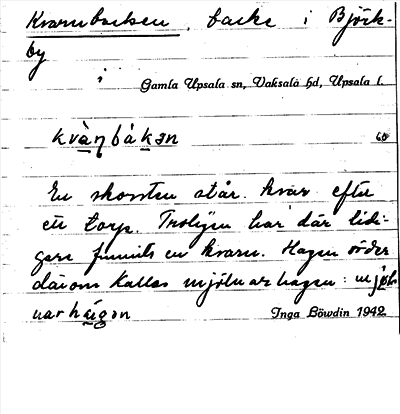 Kvarnbacken, backe i Björk-
by
i Gamla Upsala sn, Vaksala hd, Upsala l.
kvà̱ŋbàkən 60
En skorsten står kvar efter
ett torp. Troligen har där tidi-
gare funnits en kvarn. Hagen söder
därom kallas mjölnarhagen: mjöln
narhàgən Inga Löwdin 1942.